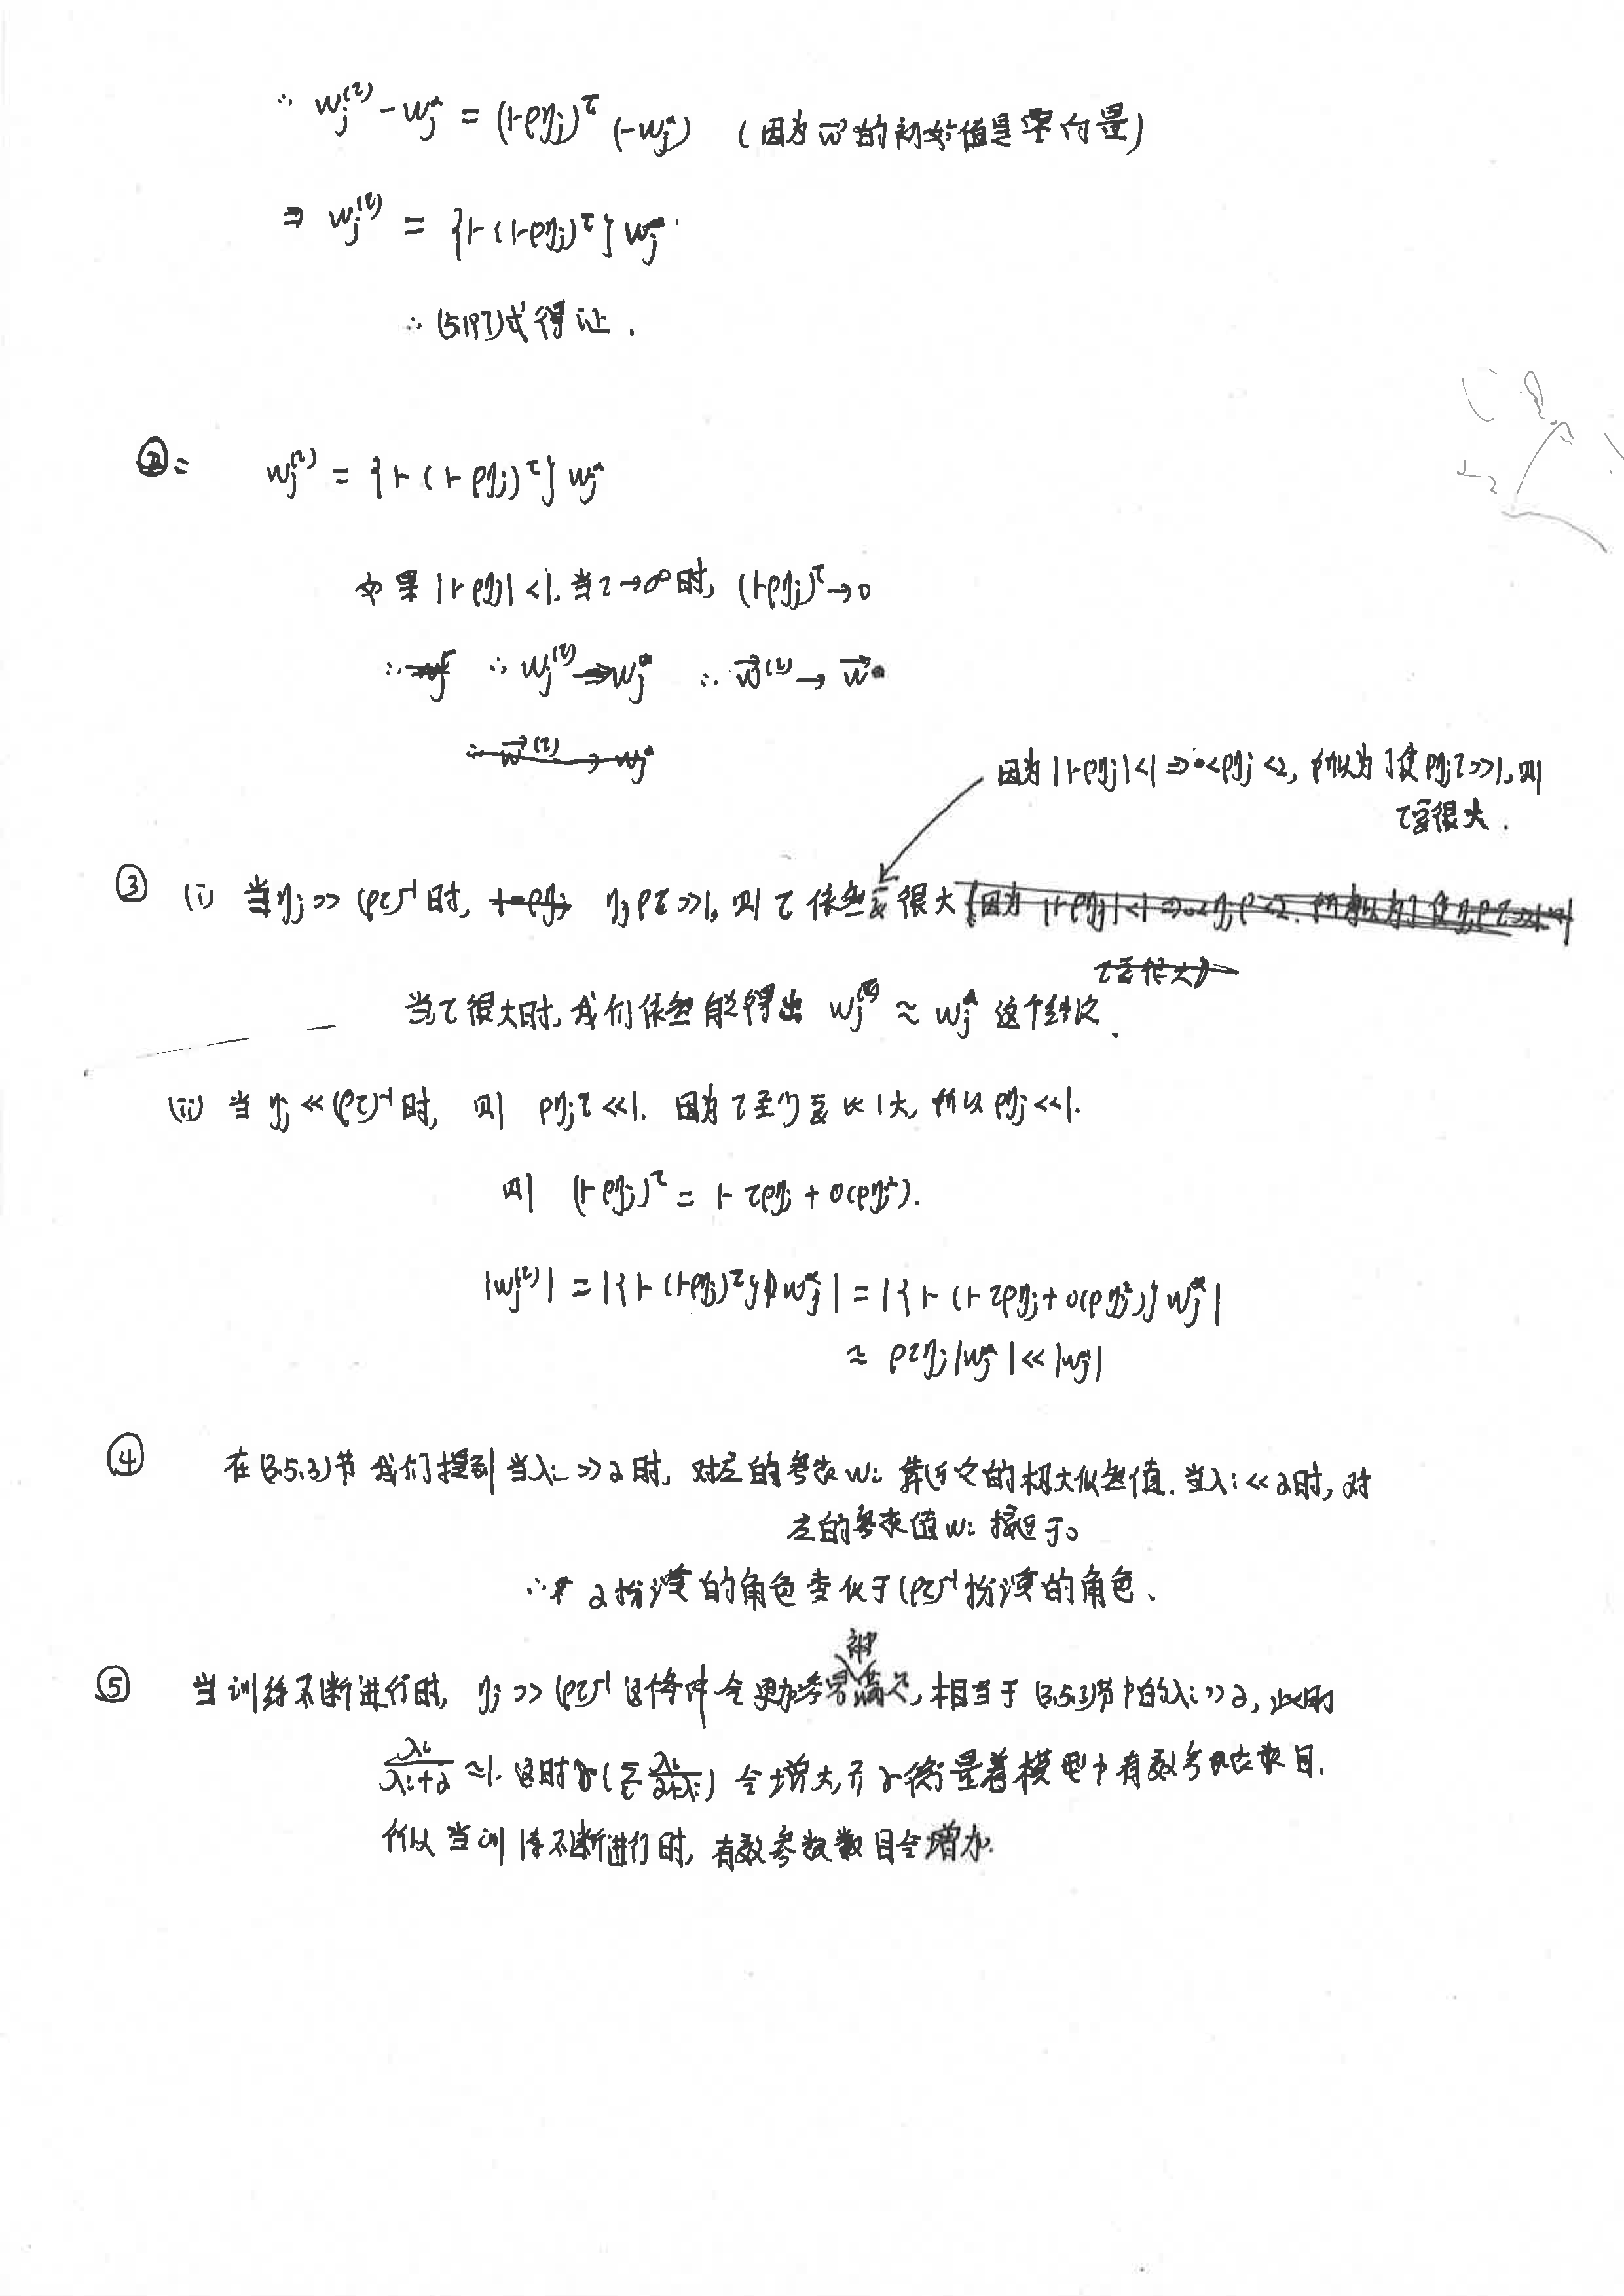 ∴ wⱼ^(τ) - wⱼ* = (1-ρηⱼ)^τ (-wⱼ*) (因为 w⃗ 的初始值是零向量)
⇒ wⱼ^(τ) = {1-(1-ρηⱼ)^τ} wⱼ*.
∴ (5.197)式得证.
②: wⱼ^(τ) = {1-(1-ρηⱼ)^τ} wⱼ*
如果 |1-ρηⱼ| <1. 当τ→∞时, (1-ρηⱼ)^τ→0
∴ wⱼ^(τ) → wⱼ* ∴ w⃗^(τ) → w⃗*
因为 |1-ρηⱼ|<1 ⇒ 0<ρηⱼ<2, 所以为了使 ρηⱼτ>>1, 则
τ要很大.
③ (i) 当ηⱼ >> (ρτ)⁻¹ 时, ηⱼρτ >>1, 则 τ 依然要很大
当τ很大时, 我们依然能得出 wⱼ^(τ) ≈ wⱼ* 这个结论.
(ii) 当 ηⱼ << (ρτ)⁻¹ 时, 则 ρηⱼτ <<1. 因为τ至少要比1大, 所以 ρηⱼ <<1.
则 (1-ρηⱼ)^τ = 1-τρηⱼ + O(ρηⱼ²).
|wⱼ^(τ)| = |{1-(1-ρηⱼ)^τ} wⱼ*| = |{1-(1-τρηⱼ+O(ρηⱼ²)} wⱼ*|
≈ ρτηⱼ|wⱼ*| << |wⱼ*|
④ 在(3.5.3)节 我们提到 当λᵢ >> α时, 对应的参数 wᵢ 靠近它的极大似然值. 当λᵢ << α时, 对
应的参数值 wᵢ 接近于0
∴ α扮演的角色类似于(ρτ)⁻¹扮演的角色.
⑤ 当训练不断进行时, ηⱼ >> (ρτ)⁻¹ 这个条件会更加容易满足, 相当于(3.5.3)节中的λᵢ >> α, 此时
λᵢ/(λᵢ+α) ≈1. 这时γ(Σᵢ λᵢ/(α+λᵢ)) 会增大, 而γ衡量着模型中有效参数数目.
所以当训练不断进行时, 有效参数数目会增加.